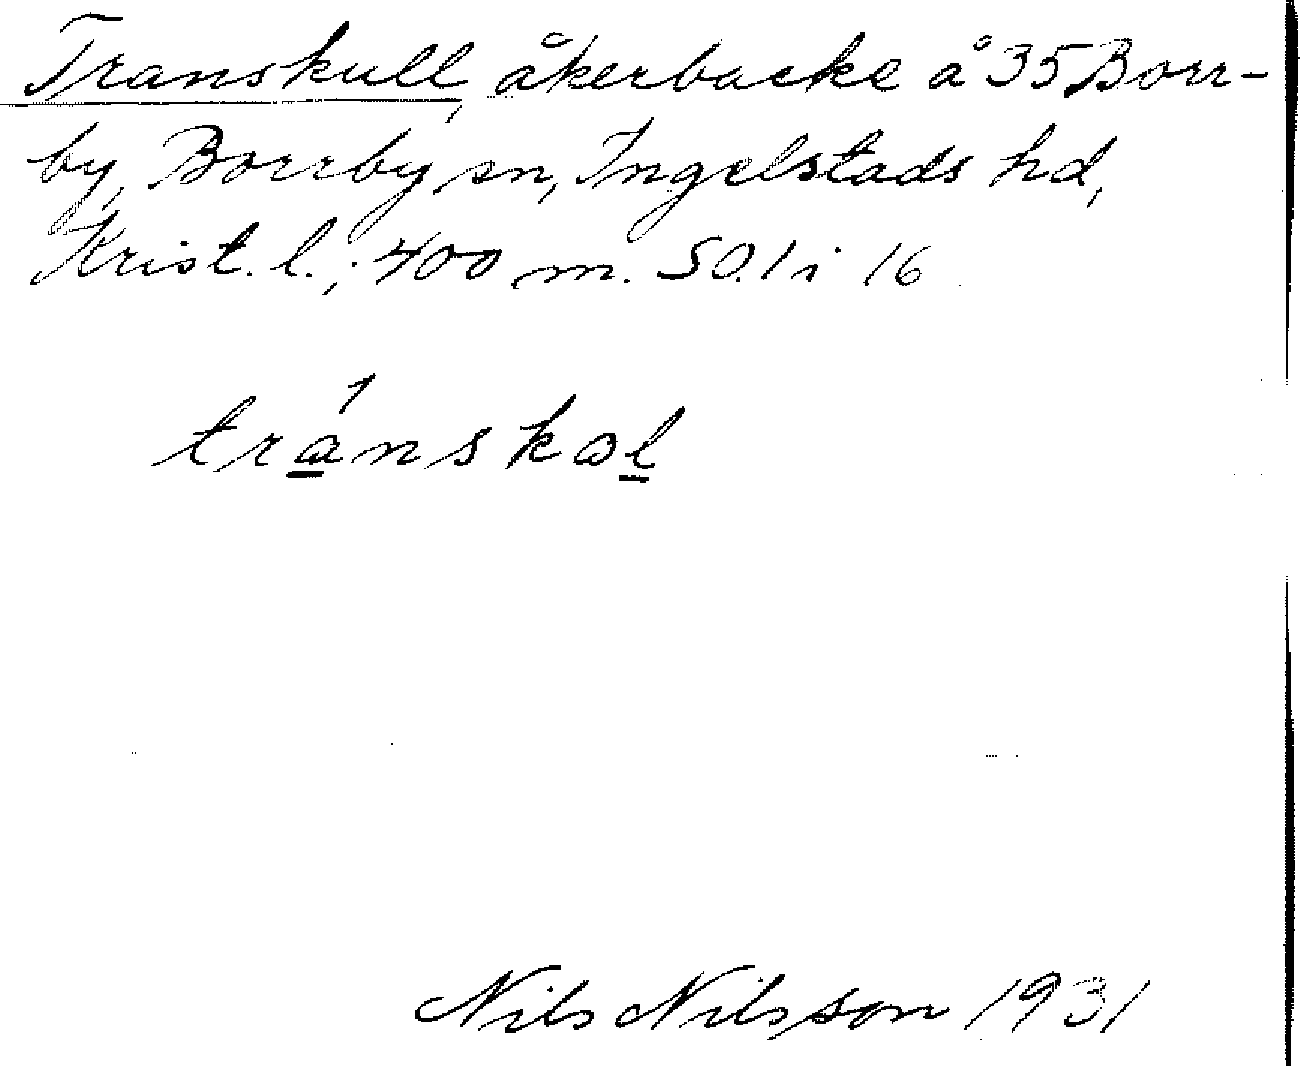 Transkull, åkerbacke å 35 Borr-
by, Borrby sn, Ingelstads hd,
Krist. l.; 400 m. SO. l i 16
tránskωl
Nils Nilsson 1931